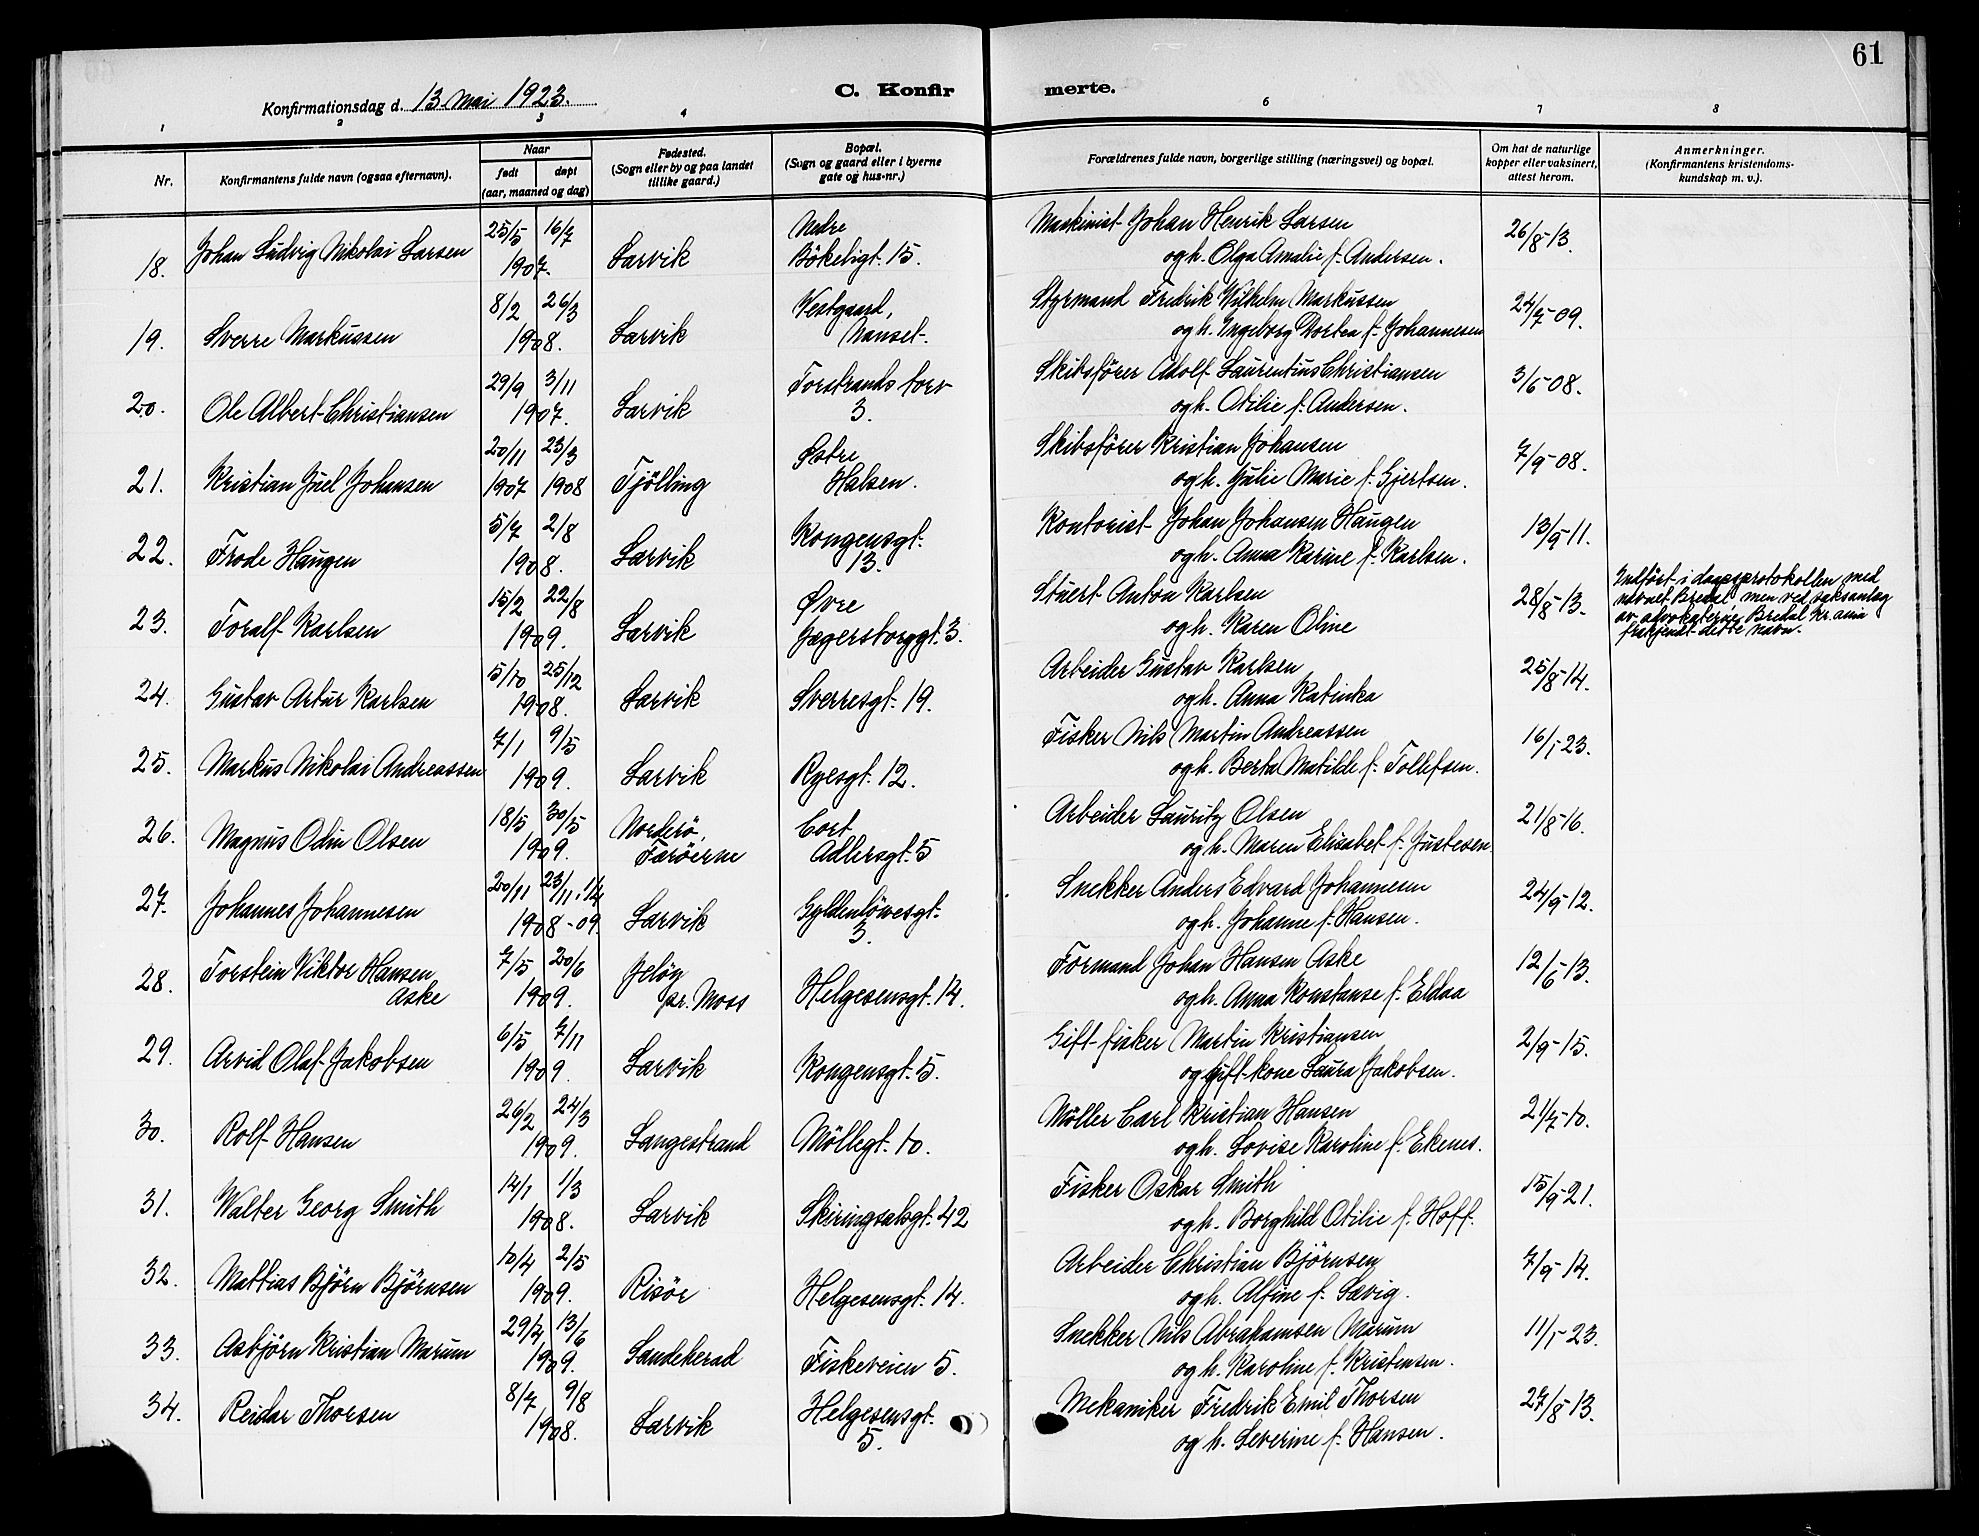 61
Konfirmationsdag d. 13 Mai 1923.
C. Konfirmerte.
1 2 3 4 6 7 8
Nr.
Konfirmantens fulde navn (ogsaa efternavn).
Naar
født døpt
(aar, maaned og dag)
Fødested.
(Sogn eller by og paa landet
tillike gaard.)
Bopæl.
(Sogn og gaard eller i byerne
gate og hus-nr.)
Forældrenes fulde navn, borgerlige stilling (næringsvei) og bopæl.
Om hat de naturlige
kopper eller vaksinert,
attest herom.
Anmerkninger.
(Konfirmantens kristendoms-
kundskap m. v.).
18. Johan Ludvig Nikolai Larsen 25/5 16/7 1907. Larvik Nedre Bökeligt. 15. Maskinist Johan Henrik Larsen
og h. Olga Amalie f. Andersen. 26/8-13.
19. Sverre Markussen 8/2 26/3 1908. Larvik Vestgaard, Nanset. Styrmand Fredrik Wilhelm Markussen
og h. Ingeborg Dortea f. Johannesen 24/7-09.
20. Ole Albert Christiansen 29/9 3/11 1907. Larvik Torstrands torv 3. Skibsfører Adolf Laurentius Christiansen
og h. Otilie f. Andersen. 3/6-08.
21. Kristian Juel Johansen 20/11 1907 23/3 1908 Tjölling Østre Halsen. Skibsfører Kristian Johansen
og h. Julie Marie f. Gjertsen. 7/9-08.
22. Frode Haugen 5/7 2/8 1908. Larvik Kongensgt. 13. Kontorist Johan Johansen Haugen
og h. Anna Karine f. Karlsen. 13/9-11.
23. Toralf Karlsen 15/2 22/8 1909. Larvik Øvre Jægersborggt. 3. Stuert Anton Karlsen
og h. Karen Oline 28/8-13. Indført i daapsprotokollen med
navnet Bredal, men ved saksanlæg
av advokaterne Bredal Kr.ania
frakjendt dette navn.
24. Gustav Artur Karlsen 5/10 25/12 1908. Larvik Sverresgt. 19. Arbeider Gustav Karlsen
og h. Anna Katinka 25/8-14.
25. Markus Nikolai Andreassen 7/1 9/5 1909. Larvik Ryesgt. 12. Fisker Nils Martin Andreassen
og h. Berta Matilde f. Tollefsen. 16/1-23.
26. Magnus Odin Olsen 18/5 30/5 1909. Norderö, Færöerne Cort Adlersgt. 5 Arbeider Lauritz Olsen
og h. Maren Elisabet f. Justesen. 21/8-16.
27. Johannes Johannesen 20/11 23/11, 1/4 1908-09. Larvik Gyldenlövesgt. 3. Snekker Anders Edvard Johannesen
og h. Johanne f. Hansen. 24/9-12.
28. Torstein Viktor Hansen Aske 7/5 20/6 1909. Jelöy pr. Moss Helgesensgt. 14. Formand Johan Hansen Aske
og h. Anna Konstanse f. Eldaa 12/6-13.
29. Arvid Olaf Jakobsen 6/5 7/11 1909. Larvik Kongensgt. 5. Gift fisker Martin Kristiansen
og gift kone Laura Jakobsen. 2/9-15.
30. Rolf Hansen 26/2 24/3 1909. Langestrand Möllegt. 10. Möller Carl Kristian Hansen
og h. Lovise Karoline f. Ekenes. 21/7-10.
31. Walter Georg Smith 14/1 1/3 1908. Larvik Skiringsalsgt. 42 Fisker Oskar Smith
og h. Borghild Otilie f. Hoff. 15/9-21.
32. Mattias Björn Björnsen 10/4 2/5 1909. Risör Helgesensgt. 14. Arbeider Christian Björnsen
og h. Alfine f. Sævig. 7/9-14.
33. Asbjörn Kristian Marum 29/4 13/6 1909. Sandeherad Fiskeveien 5. Snekker Nils Abrahamsen Marum
og h. Karoline f. Kristensen. 11/1-23.
34. Reidar Thorsen 8/7 9/8 1908. Larvik Helgesensgt. 5. Mekaniker Fredrik Emil Thorsen
og h. Severine f. Hansen. 27/8-13.